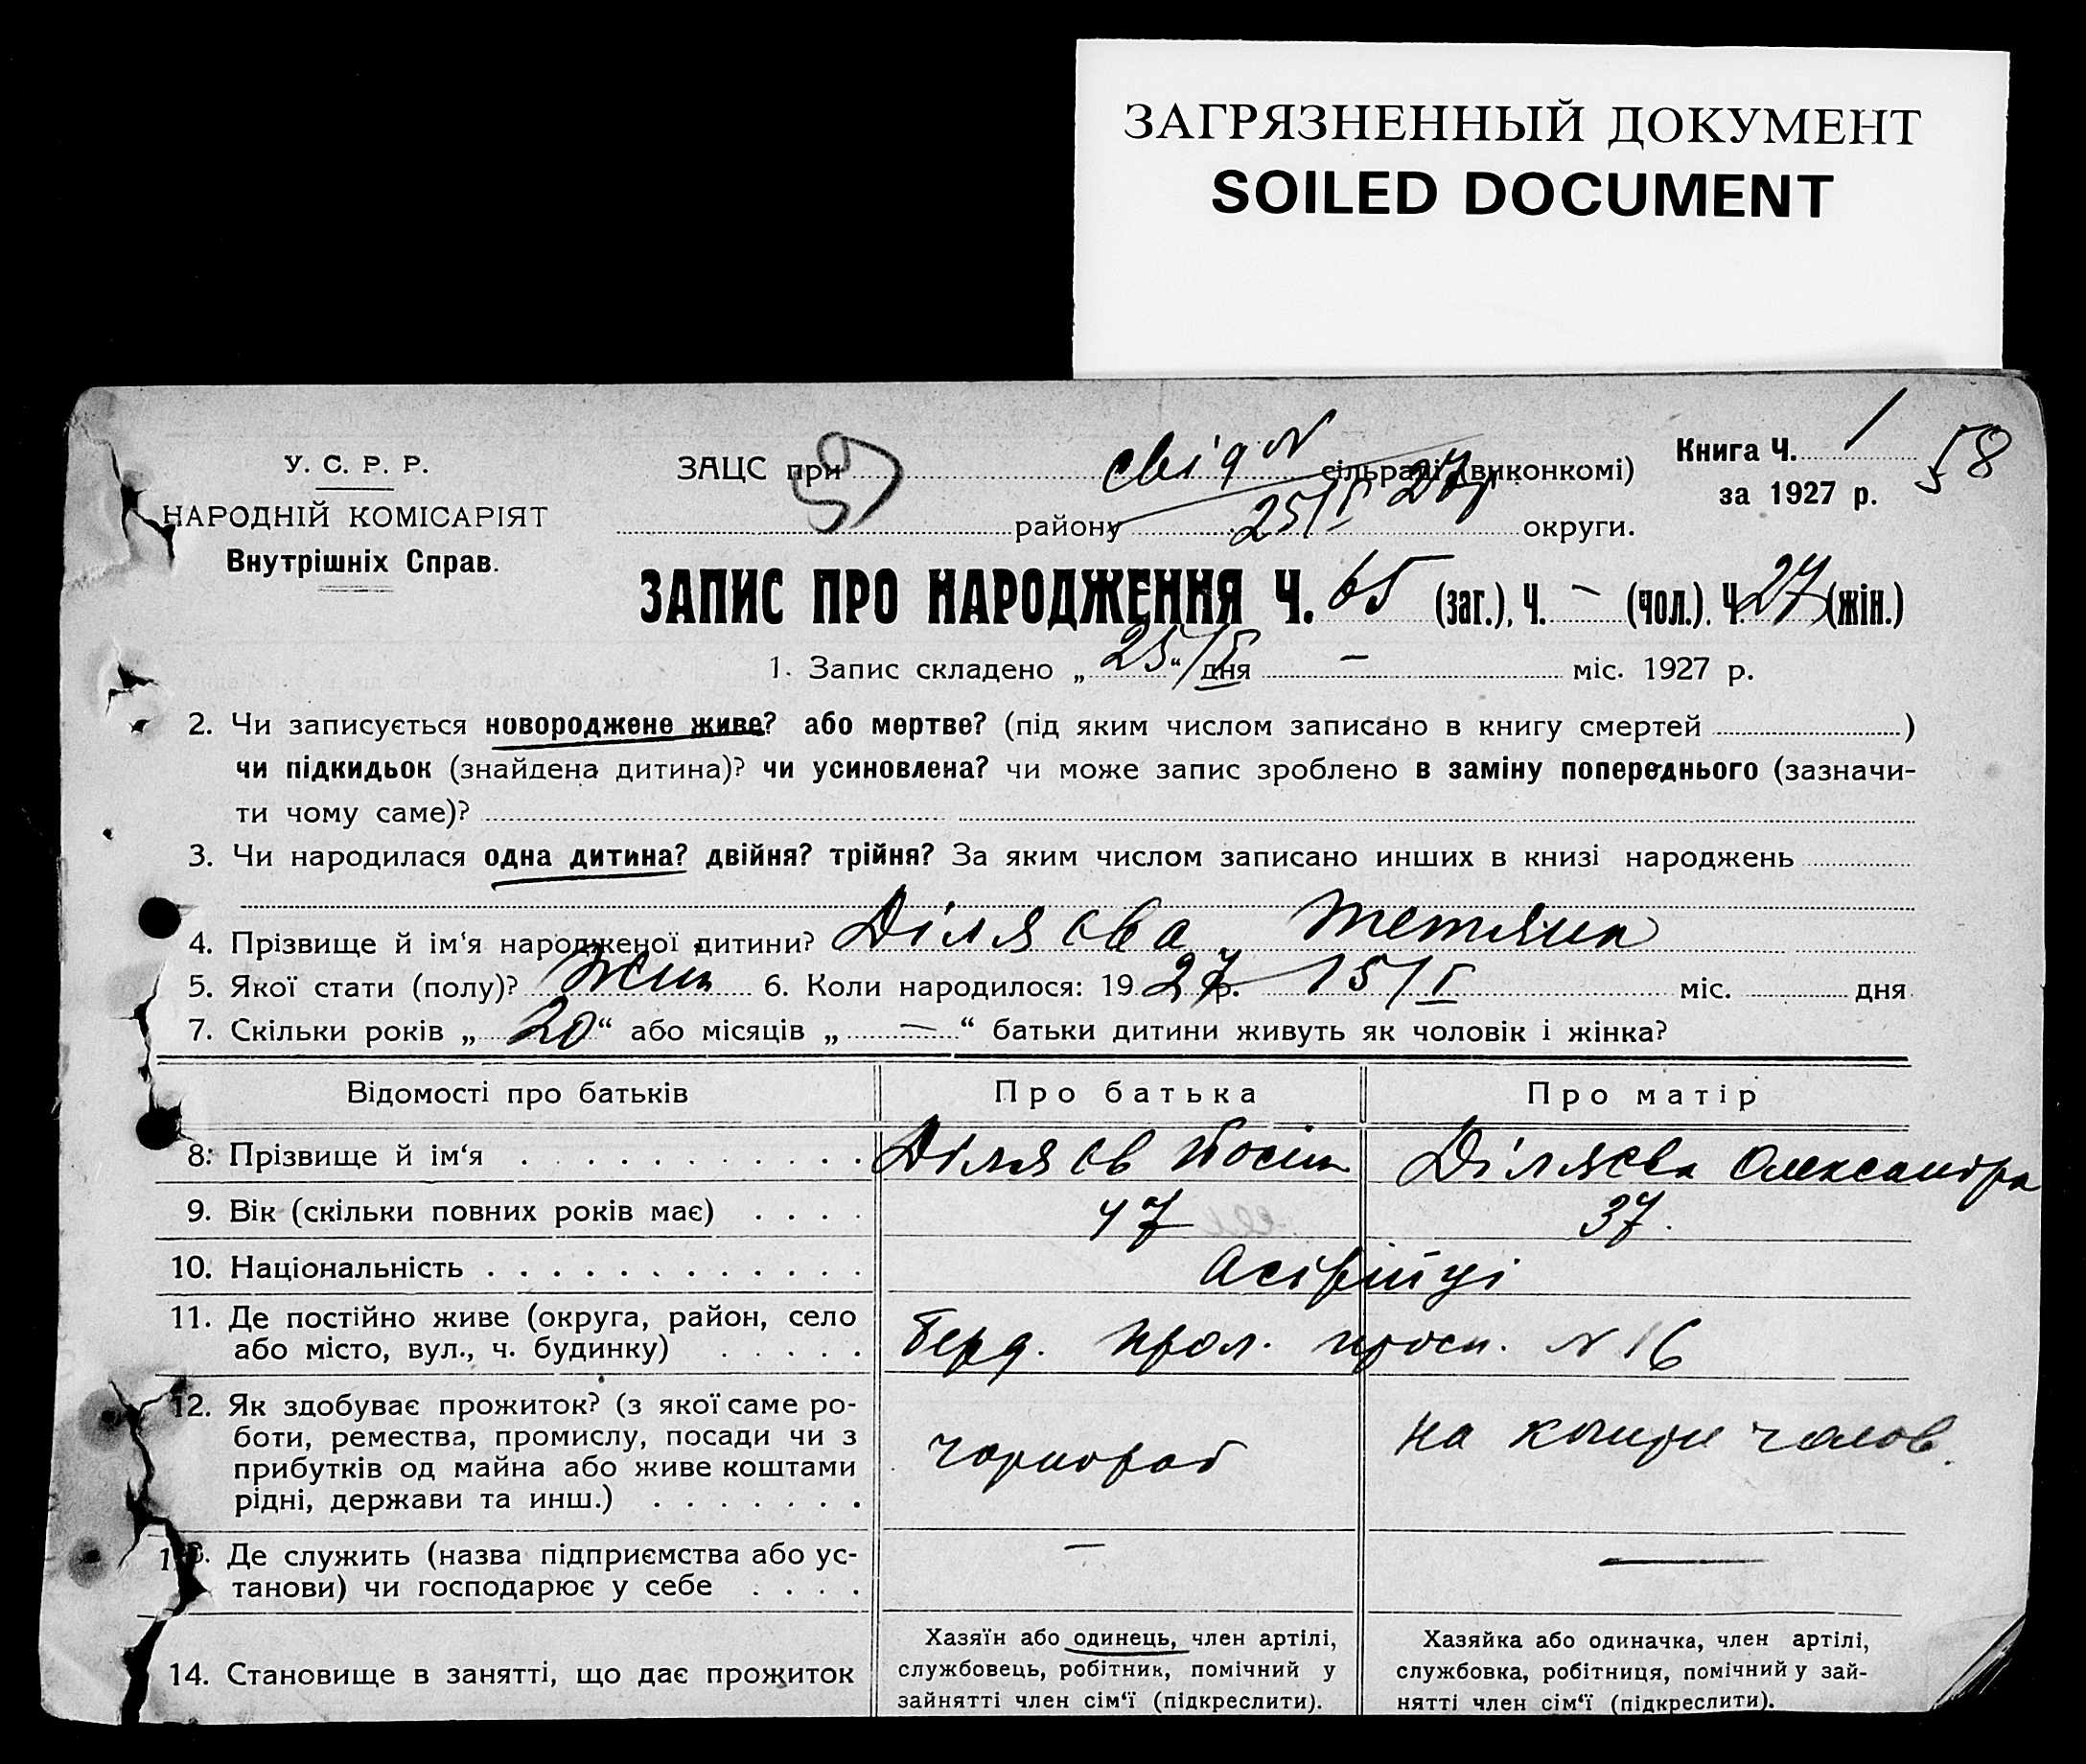 ЗАГРЯЗНЕННЫЙ ДОКУМЕНТ
SOILED DOCUMENT
У. С. Р. Р.
НАРОДНІЙ КОМІСАРІЯТ
Внутрішніх Справ.
ЗАЦС при свід N сільраді (виконкомі)
району 25/I 27р округи.
Книга Ч. 1
за 1927 р.
58
ЗАПИС ПРО НАРОДЖЕННЯ Ч. 65 (заг.), Ч. - (чол.). Ч. 27 (жін.)
1. Запис складено „ 25 “ /I дня — міс. 1927 р.
2. Чи записується новороджене живе? або мертве? (під яким числом записано в книгу смертей )
чи підкидьок (знайдена дитина)? чи усиновлена? чи може запис зроблено в заміну попереднього (зазначи-
ти чому саме)?
3. Чи народилася одна дитина? двійня? трійня? За яким числом записано инших в книзі народжень
4. Прізвище й ім‘я народженої дитини? Діляєва Тетяна
5. Якої стати (полу)? Жін 6. Коли народилося: 19 27 р. 15/I міс. дня
7. Скільки років „ 20 “ або місяців „ — “ батьки дитини живуть як чоловік і жінка?
Відомості про батьків Про батька Про матір
8. Прізвище й ім‘я Діляєв Йосип Діляєва Олександра
9. Вік (скільки повних років має) 47 37.
10. Національність Асірійці
11. Де постійно живе (округа, район, село
або місто, вул., ч. будинку) Берд. прол. просп. N 16
12. Як здобуває прожиток? (з якої саме ро-
боти, ремества, промислу, посади чи з
прибутків од майна або живе коштами
рідні, держави та инш.) чорнороб на кошти чолов.
13. Де служить (назва підприємства або ус-
танови) чи господарює у себе — —
14. Становище в занятті, що дає прожиток
Хазяїн або одинець, член артілі,
службовець, робітник, помічний у
зайнятті член сім‘ї (підкреслити).
Хазяйка або одиначка, член артілі,
службовка, робітниця, помічний у зай-
нятті член сім‘ї (підкреслити).